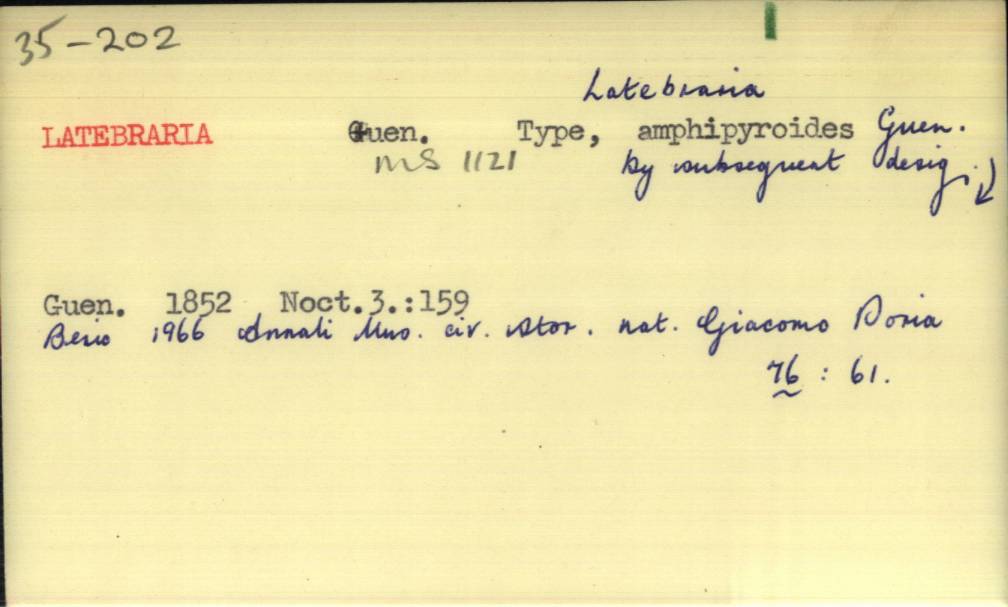 35-202
Latebraria
LATEBRARIA Guen. Type, amphipyroides Guen.
MS 1121 by subsequent desig.
Guen. 1852 Noct.3.:159
Berio 1966 Annali Mus. civ. stor. nat. Giacomo Doria
76 : 61.